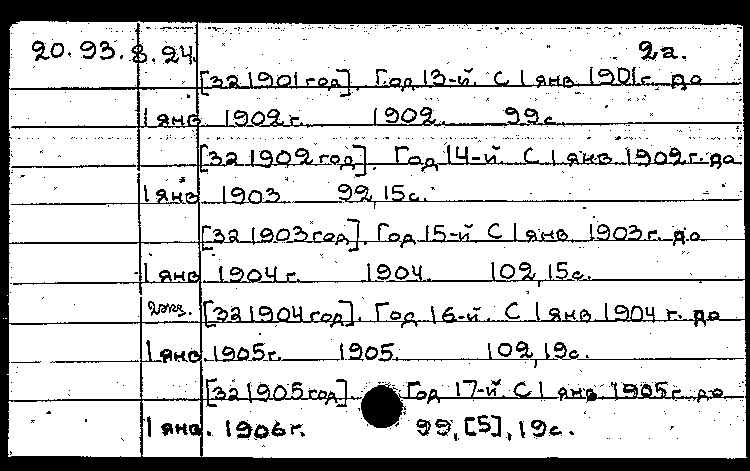 20.93.8.24. 2а.
[за 1901 год]. Год 13-й. С 1 янв 1901г. до
1 янв 1902 г. 1902. 99 с.
[за 1902 год]. Год 14-й С 1 янв 1902 г. до
1 янв 1903 99,15с.
[за 1903 год]. Год 15-й С 1 янв. 1903 г. до
1 янв 1904 г. 1904. 102,15с.
2 экз. [за 1904 год]. Год 16-й. С 1 янв 1904 г. до
1 янв. 1905г. 1905. 102,19с.
[за 1905 год] Год 17-й С 1 янв 1905г. до
1 янв. 1906 г. 99,[5],19с.